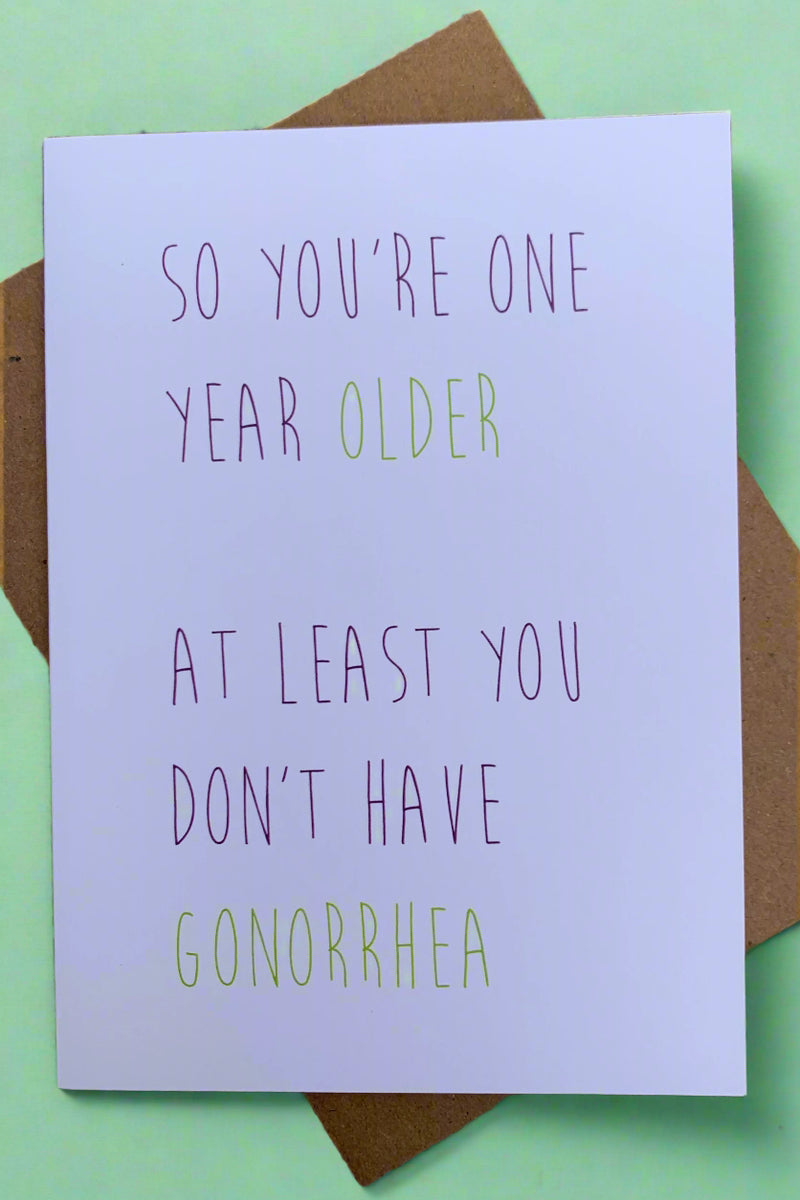 SO YOU'RE ONE
YEAR OLDER
AT LEAST YOU
DON'T HAVE
GONORRHEA